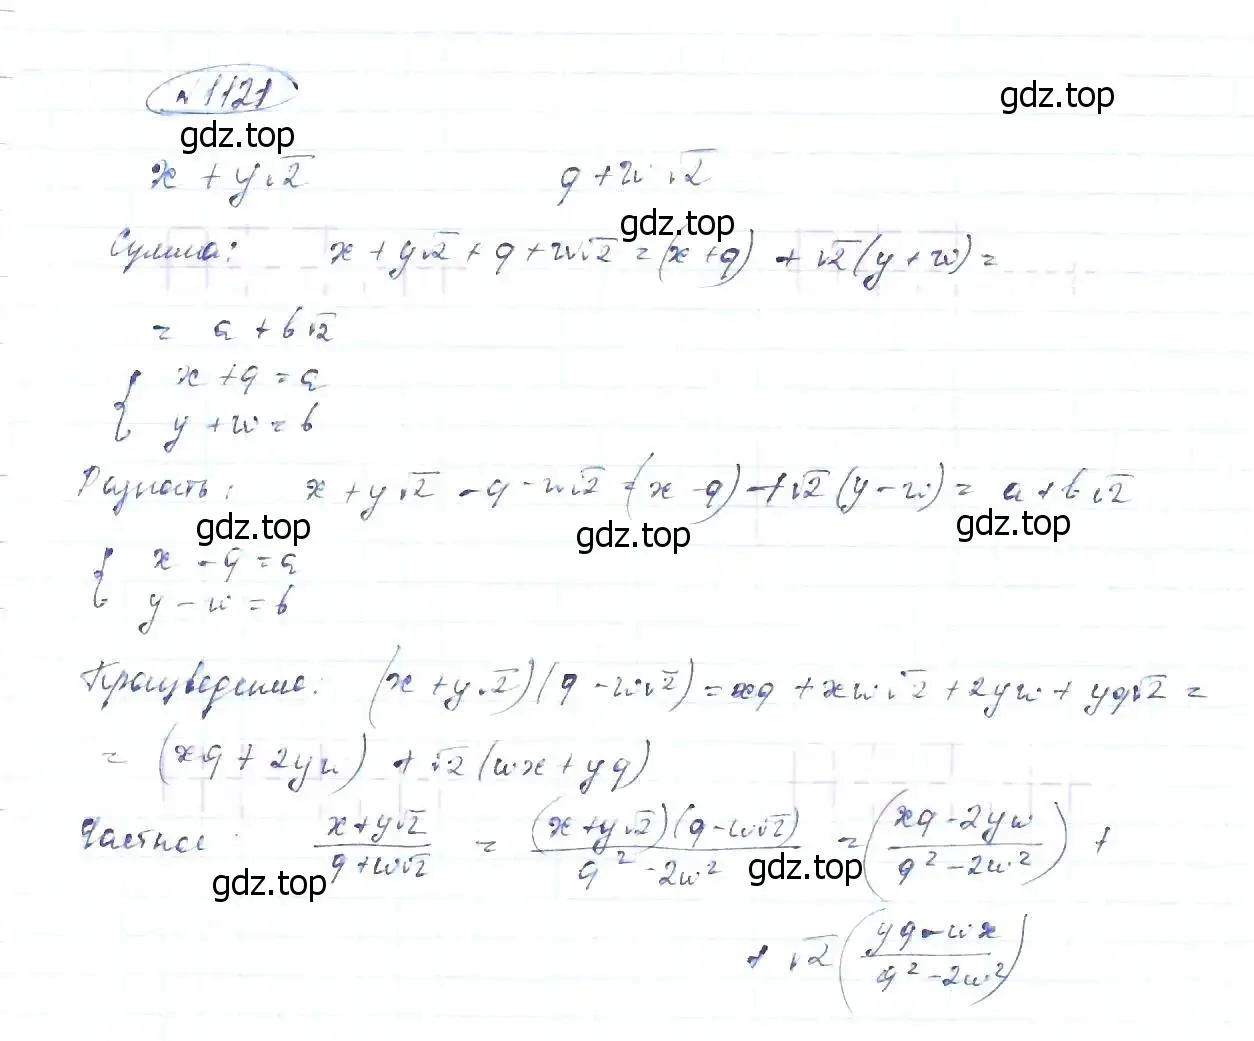 № 1121
gdz.top
gdz.top
x + y√2    q + w√2
gdz.top
Сумма: x + y√2 + q + w√2 = (x + q) + √2(y + w) =
= a + b√2
{ x + q = a
y + w = b
Разность: x + y√2 - q - w√2 = (x - q) + √2(y - w) = a + b√2
gdz.top gdz.top gdz.top
{ x - q = a
y - w = b
Произведение: (x + y√2)(q - w√2) = xq + xw√2 + 2yw + yq√2 =
= (xq + 2yw) + √2(wx + yq)
Частное: (x + y√2)/(q + w√2) = ((x + y√2)(q - w√2))/(q² - 2w²) = ((xq - 2yw)/(q² - 2w²)) +
gdz.top gdz.top
+ √2((yq - wx)/(q² - 2w²))